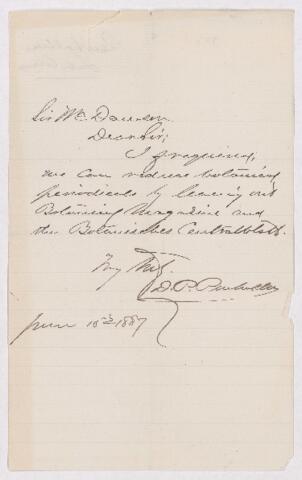 Sir Wm Dawson
Dear Sir;
I
we can reduce botanical
periodicals by leaving out
Botanical Magazine and
the Botanisches Centralblatt.
Truly
D. P. Penhallow
June 18th 1887